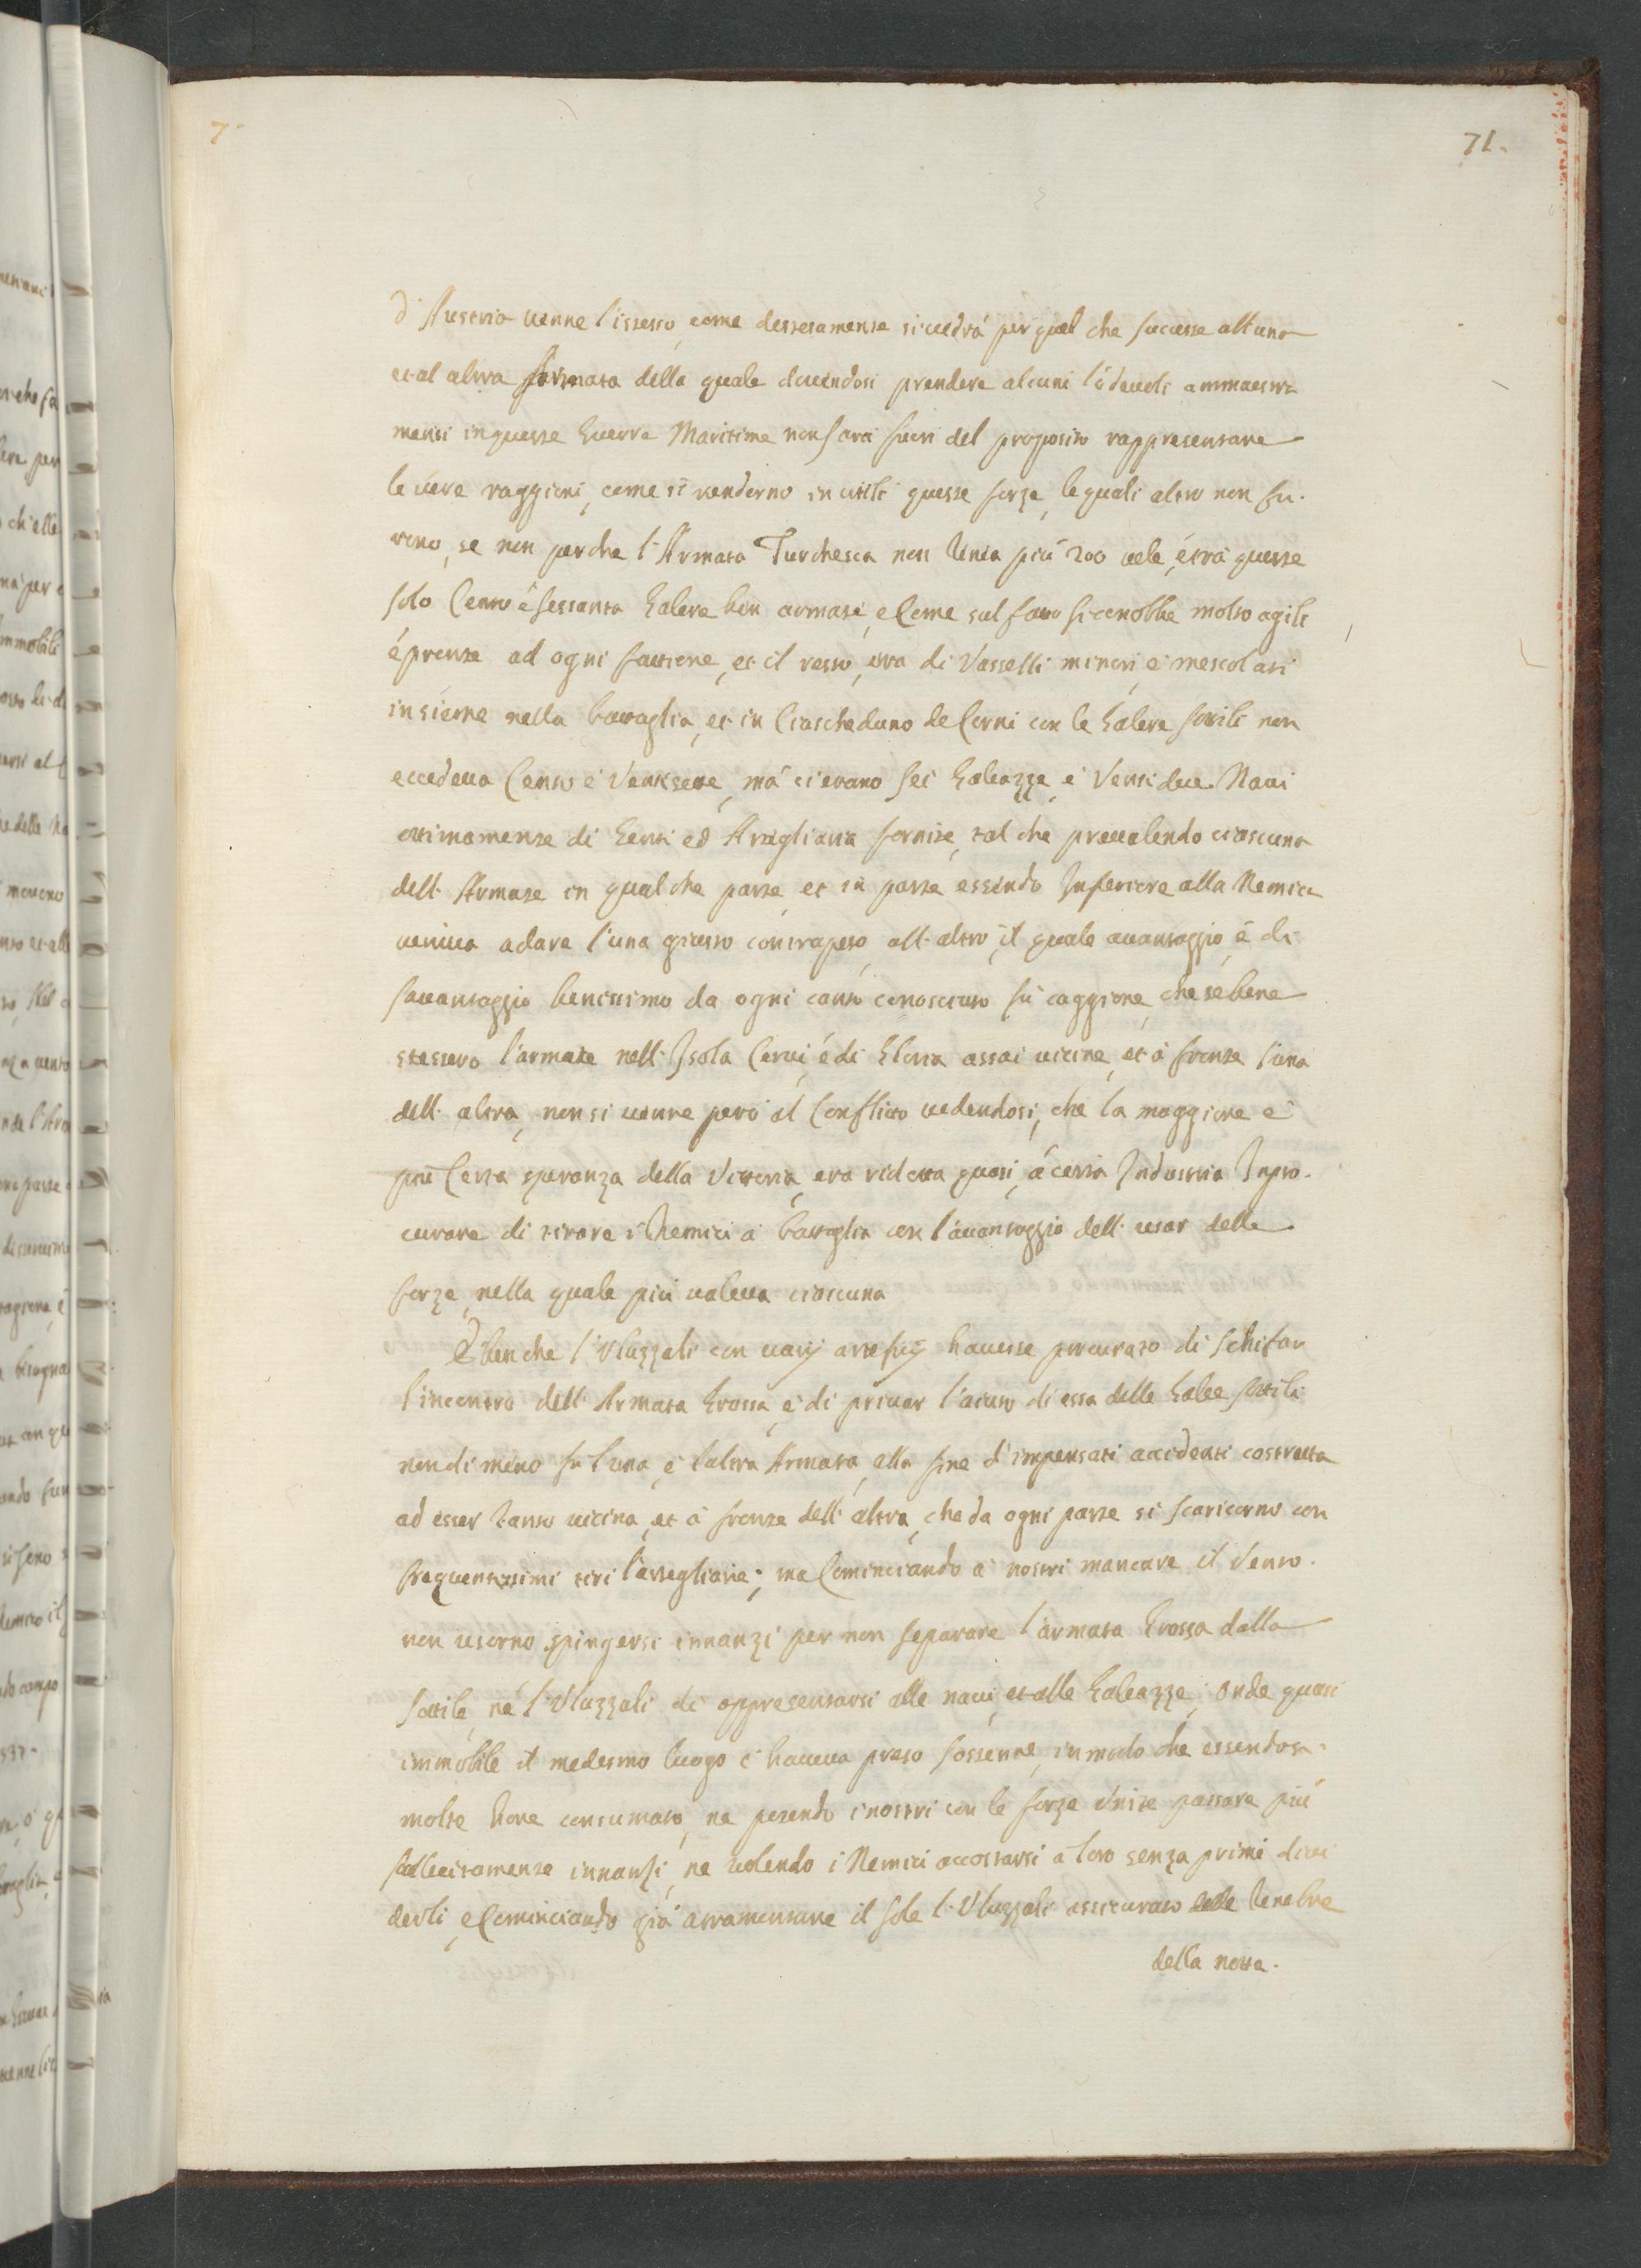 7
71.
d'Austria uenne l'istesso, come destesamente si uedrà per quel che successe all'una
et al altra Armata della quale douendosi prendere alcuni lodeuoli ammaestra
menti in queste Guerre Maritime non sarà fuori del proposito rappresentare
le uere raggioni, come si renderno inutili queste forze, le quali altro non fu.
rono, se non perche l'Armata Turchesca non tenea più 200 uele, e trà queste
solo Cento e sessanta Galere ben armate, e Come sul fatto si conobbe molto agili
é pronte ad ogni fattione, et il resto, era di Vasselli minori, e mescolati
insieme nella battaglia, et in Ciascheduno de Corni con le Galere sottili non
eccedeua Cento e Ventisette, mà ci erano sei Galeazze, e Venti due Naui
ottimamente di Genti ed Artegliaria fornite, tal che preualendo ciascuna
dell'Armate in qualche parte, et in parte essendo Inferiore alla Nemica
ueniua a dare l'una giusto contrapeso, all'altro, il quale auantaggio, é di
sauantaggio benissimo da ogni canto conosciuto fù caggione, che sebene
stessero l'armate nell'Isola Cerui, é di Elena assai uicine, et à fronte l'una
dell'altra, non si uenne però al Conflitto uedendosi, che la maggiore e
più Certa speranza della Vittoria, era ridotta quasi, à certa Industria In pro.
curare di tirare i Nemici a battaglia con l'auantaggio dell'usar delle
forze, nella quale più ualeua ciascuna
E benche l'Uluzzali con uarij artefitij hauesse procurato di schifar
l'incontro dell'Armata Grossa, e di priuar l'aiuto di essa delle Galee sottili
nondimeno fu l'una, e l'altra Armata, alla fine d'impensati accidenti costretta
ad esser tanto uicina, et à fronte dell'altra, che da ogni parte si scaricorno con
frequentissimi tiri l'artegliarie; ma Cominciando a nostri mancare il Vento.
non usorno spingersi innanzi per non separare l'armata Grossa dalla
sottile, né l'Uluzzali di appresentarsi alle naui, et alle Galeazze; Onde quasi
immobile il medesmo luogo c'haueua preso sostenne, in modo che essendosi
molte hore consumato, ne potendo i nostri con le forze Unite passare più
sollecitamente innanzi, ne uolendo i Nemici accostarsi a loro senza prima diui
derli, e Cominciando già a tramontare il sole l'Uluzzali assicurato delle tenebre
della notte.